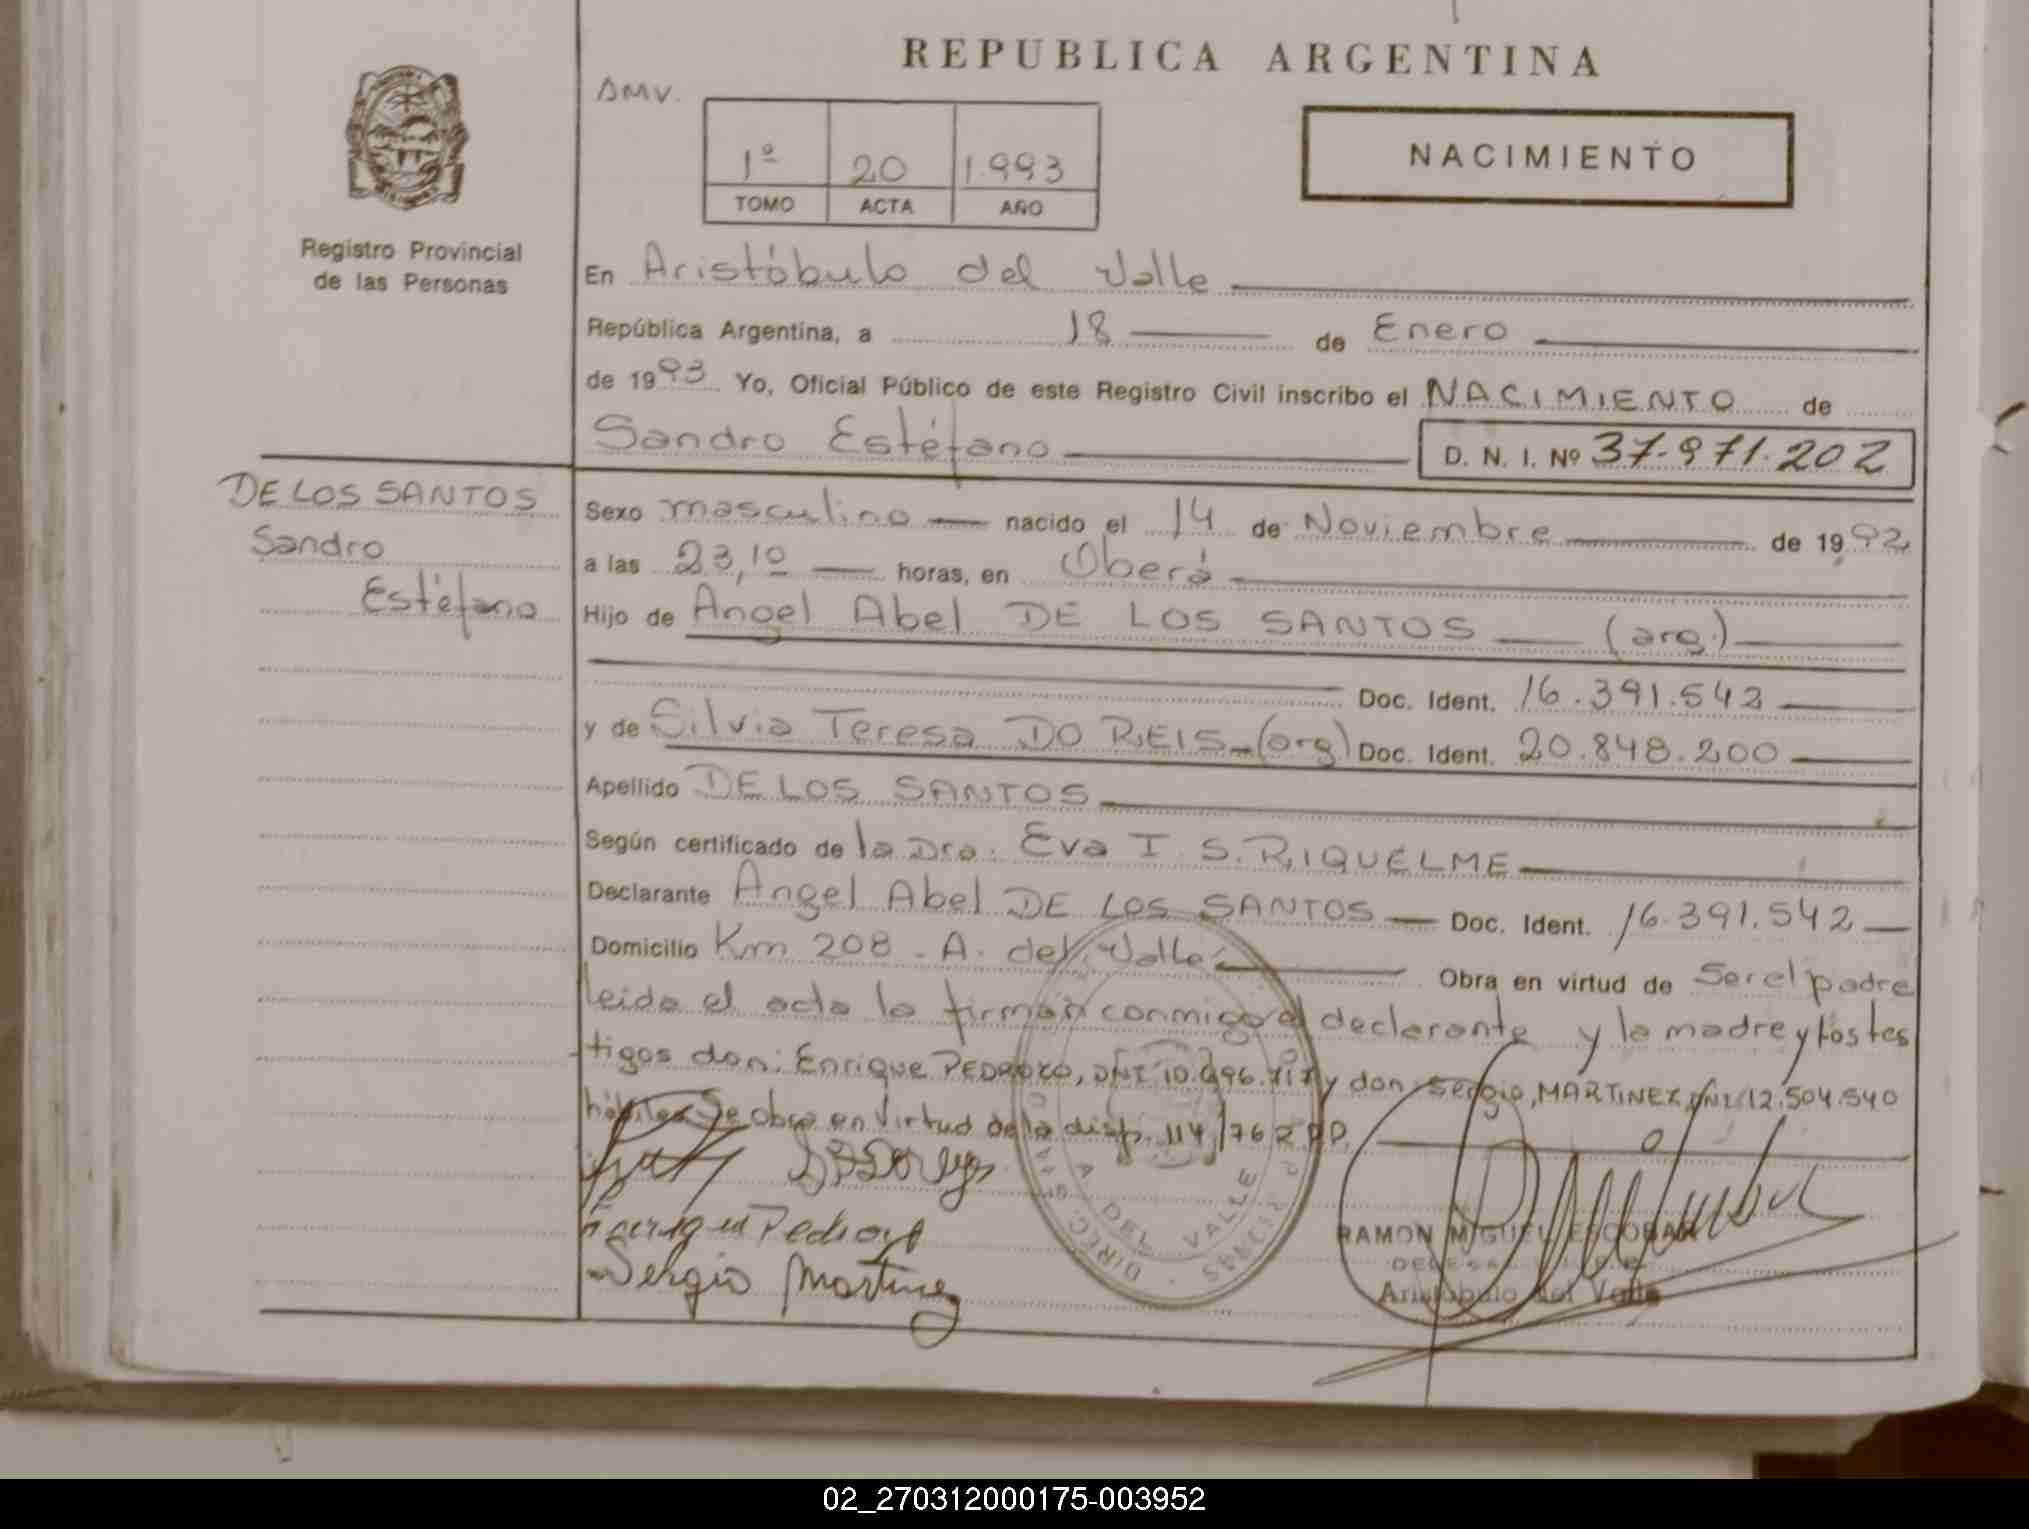 REPUBLICA ARGENTINA
DMV.
1º 20 1.993
TOMO ACTA AÑO
NACIMIENTO
Registro Provincial
de las Personas
En Aristóbulo del Valle
República Argentina, a 18 de Enero
de 1993 Yo, Oficial Público de este Registro Civil inscribo el NACIMIENTO de
Sandro Estéfano D. N. I. Nº 37.971.202
DE LOS SANTOS
Sandro
Estéfano
Sexo masculino nacido el 14 de Noviembre de 1992
a las 23,10 horas, en Oberá
Hijo de Angel Abel DE LOS SANTOS (arg.)
Doc. Ident. 16.391.542
y de Silvia Teresa DO REIS (arg) Doc. Ident. 20.848.200
Apellido DE LOS SANTOS
Según certificado de la Dra. Eva I. S. RIQUELME
Declarante Angel Abel DE LOS SANTOS Doc. Ident. 16.391.542
Domicilio Km 208 - A. del Valle Obra en virtud de Ser el padre
leida el acta la firman conmigo el declarante y la madre y los tes
tigos don: Enrique PEDROZO, DNI y don Sergio, MARTINEZ DNI 12.504.540
hábiles Se obra en virtud de la disp. 114/76 R.P.P.
Sergio Martinez
DIREC. A. DEL VALLE
RAMON MIGUEL ESCOBAR
Aristóbulo del Valle
02_270312000175-003952